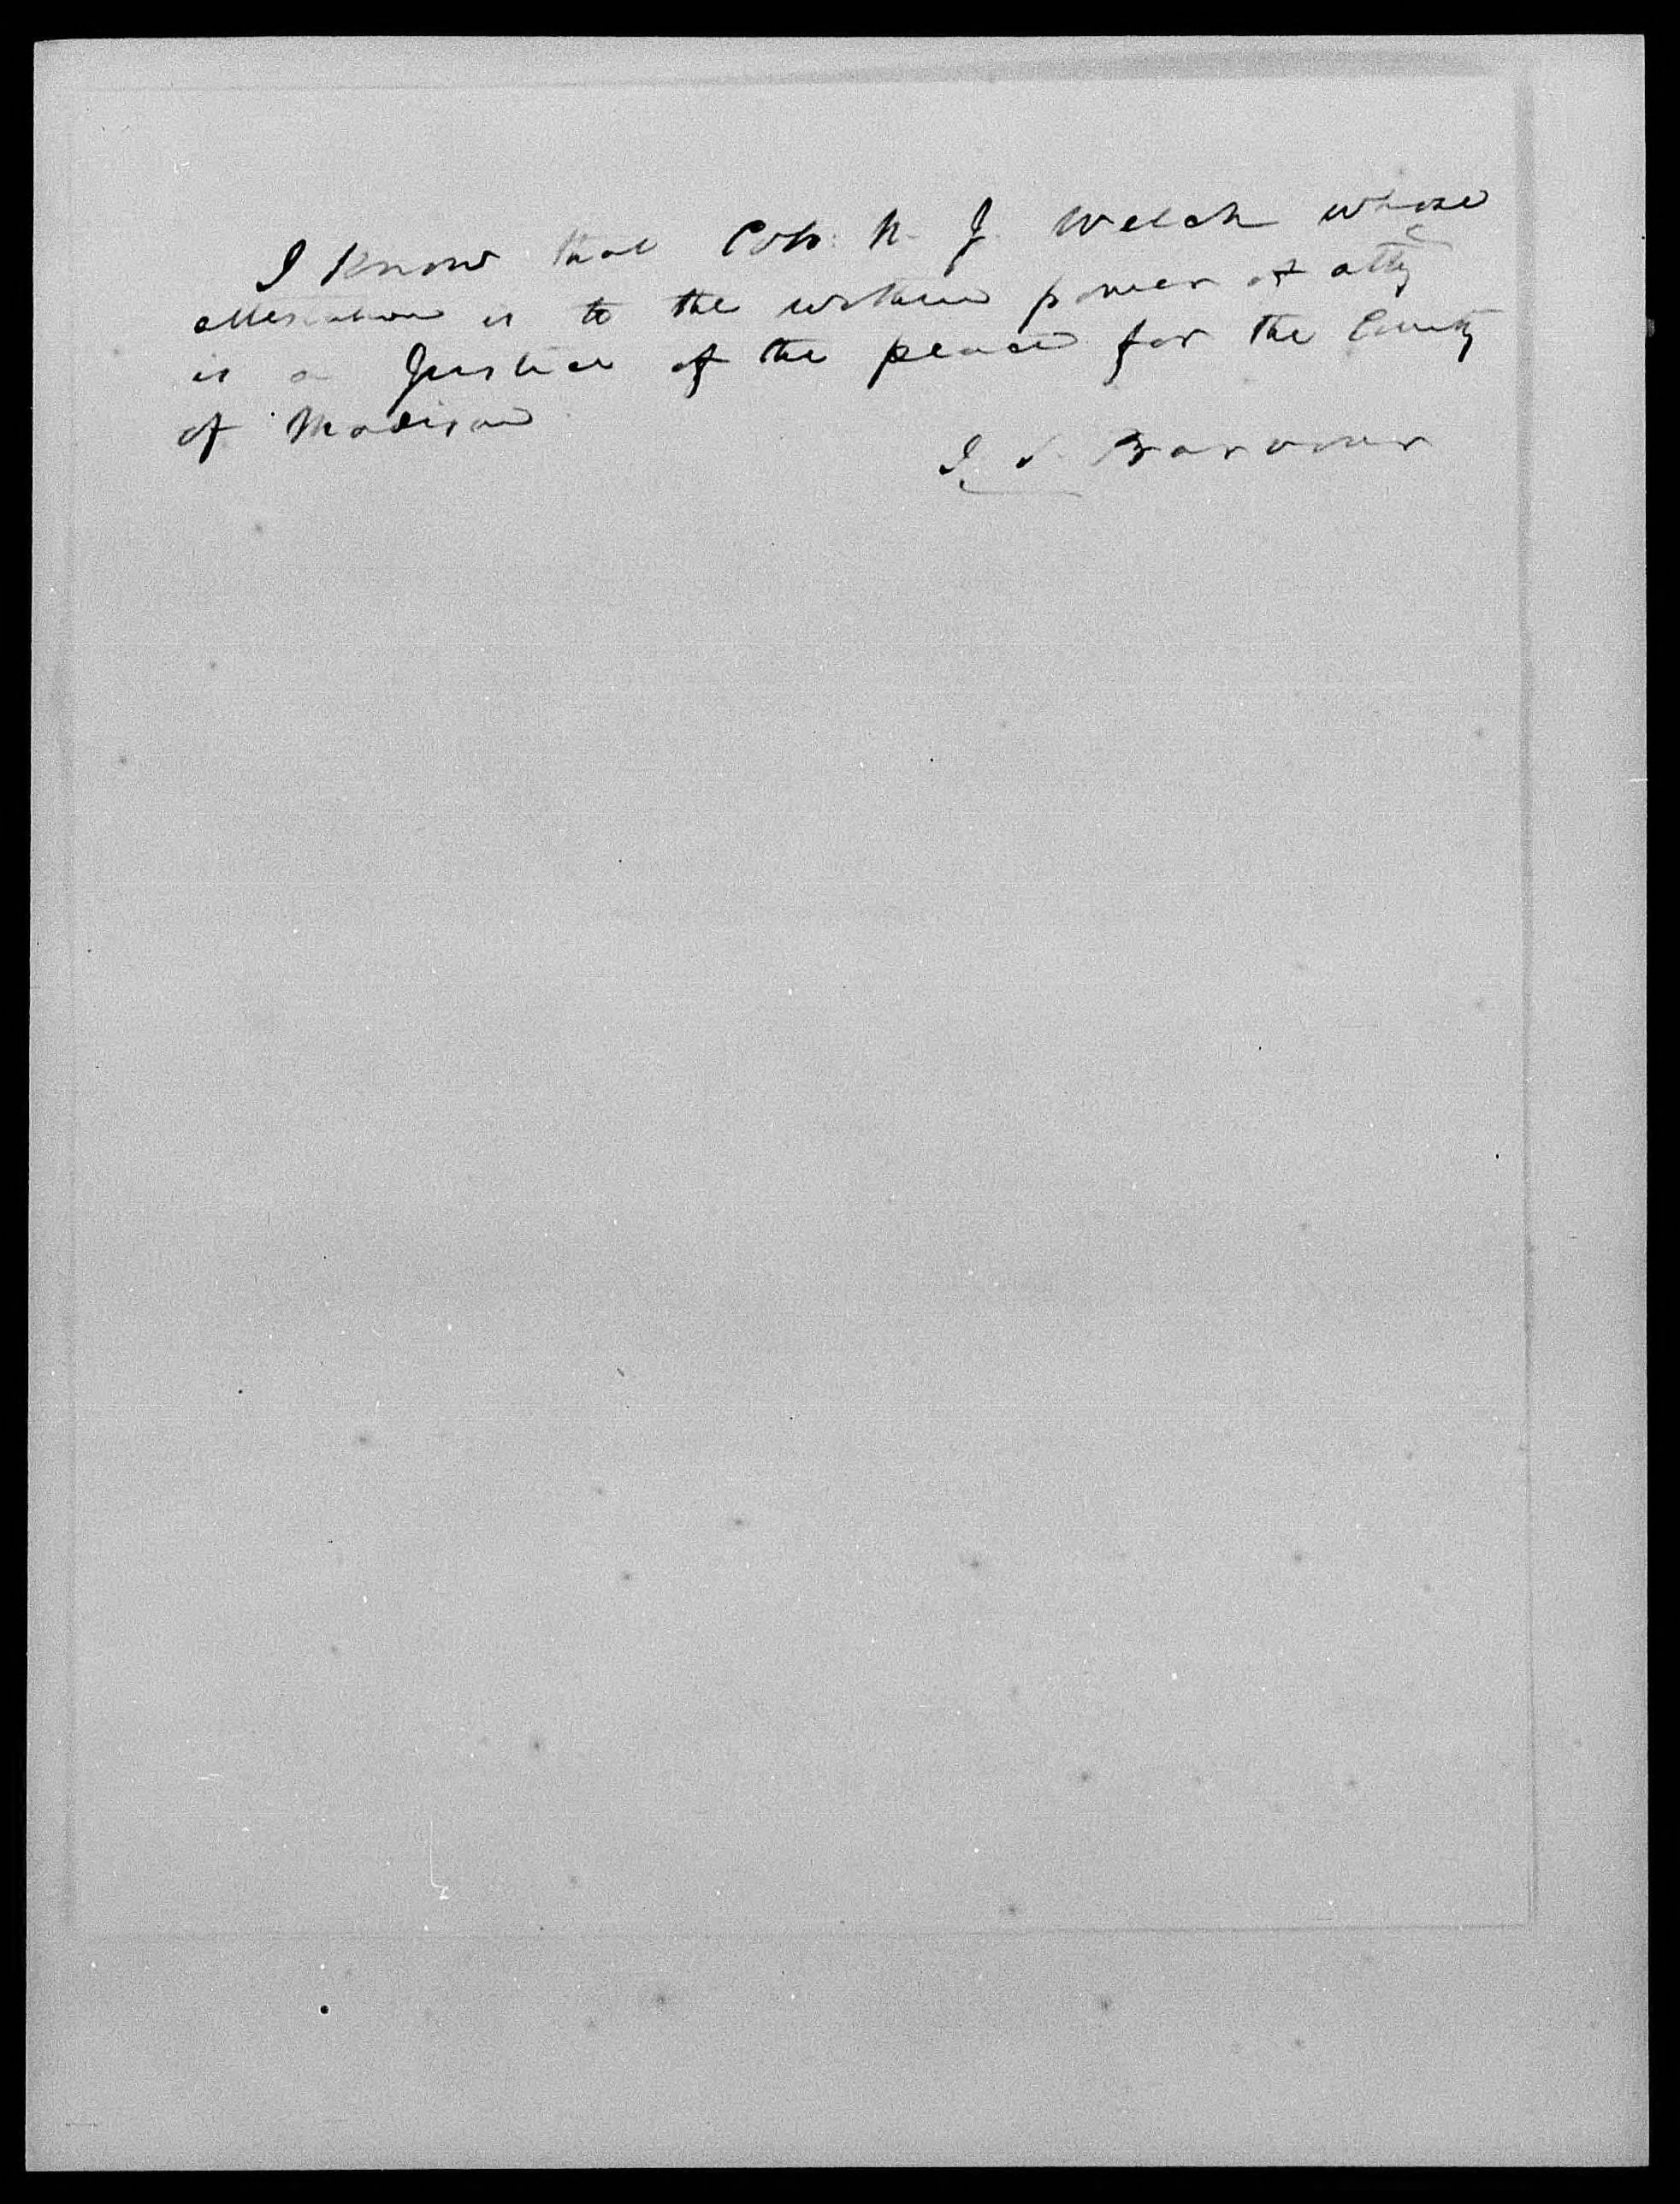 I know that Col. N. J. Welch whose
attestation is to the within power of atty
is a Justice of the peace for the County
of Madison
J. S. Barbour